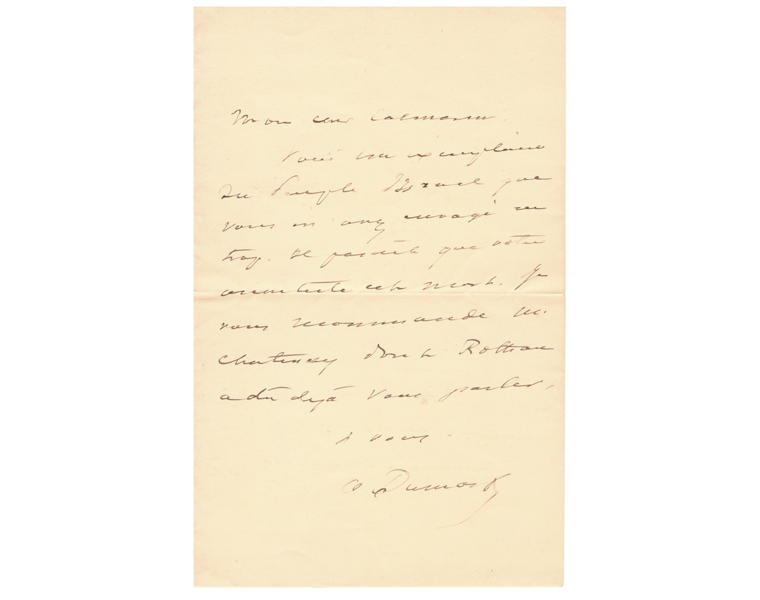 Mon cher Calmann
Voici un exemplaire
du Peuple Israel que
vous m'avez envoyé en
trop. Il paraît que votre
architecte est mort. Je
vous recommande M.
Chatenay dont Rothan
a dû déjà vous parler.
à vous.
A Dumas f